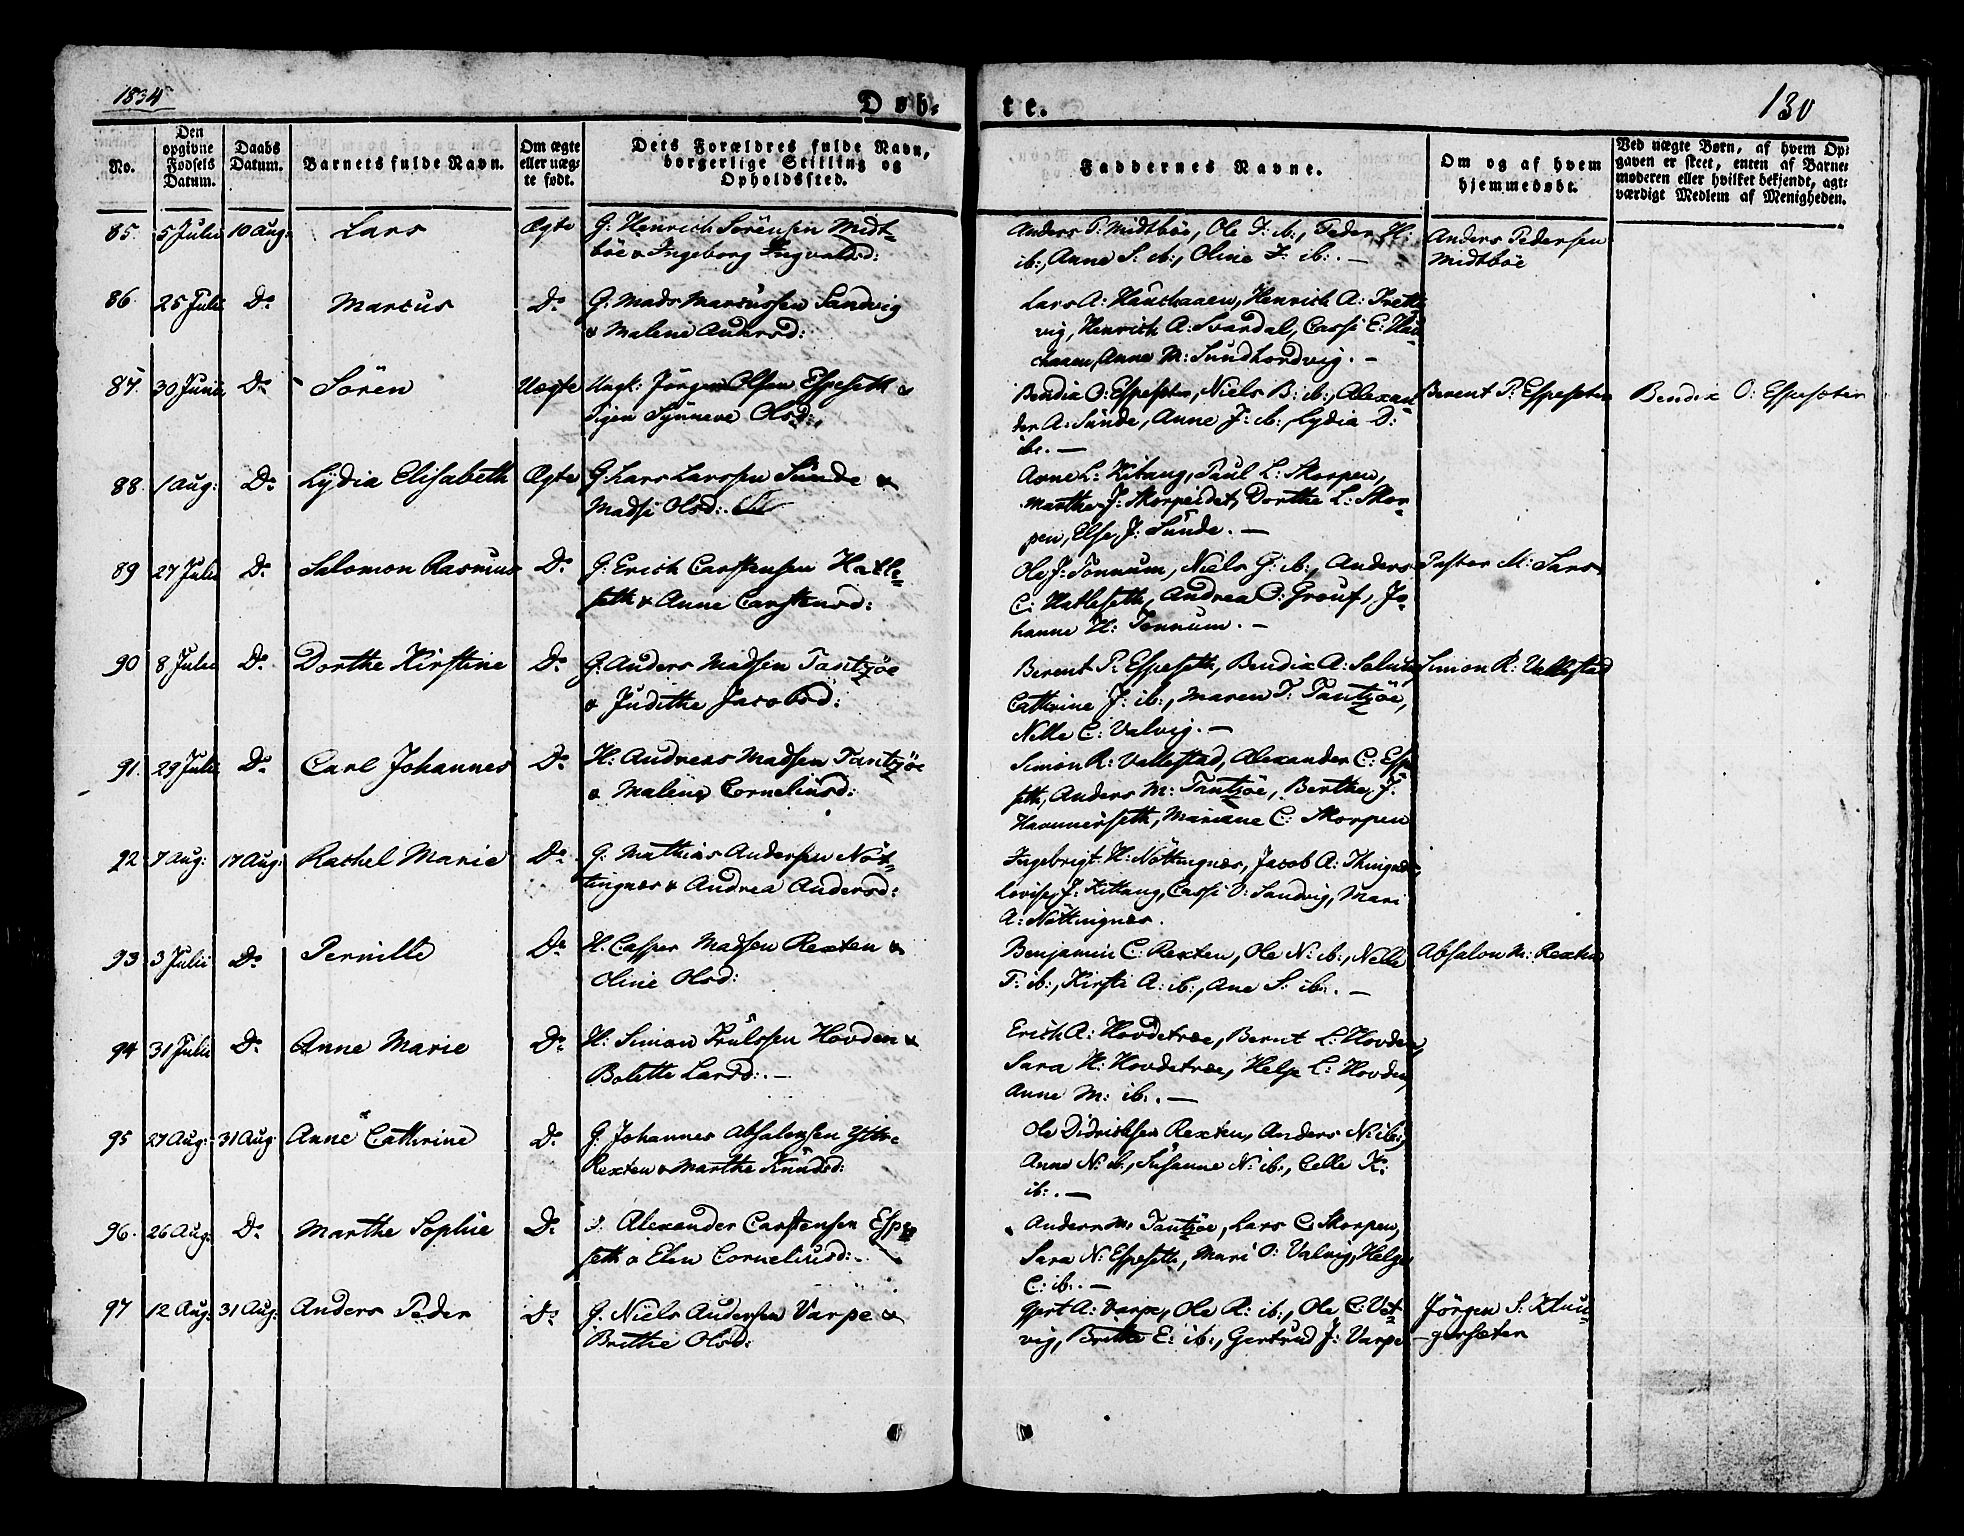 1834
Døb-
te.
130
No.
Den opgivne Fødsels Datum.
Daabs Datum.
Barnets fulde Navn.
Om ægte eller uæg-
te født.
Dets Forældres fulde Navn, borgerlige Stilling og Opholdssted.
Faddernes Navne.
Om og af hvem hjemmedøbt.
Ved uægte Børn, af hvem Op-
gaven er skeet, enten af Barne-
moderen eller hvilket bekjendt, agt-
værdigt Medlem af Menigheden.
85. 5 Julii 10 Aug: Lars Ægte G: Henrich Sörensen Midt-
böe & Ingeborg Ingvaldsd:
Anders P: Midtböe, Ole I: ib:, Peder H:
ib:, Anne S: ib:, Oline I: ib:. —
Anders Pedersen
Midtböe
86 25 Julii Do Marcus Do G: Mads Marcussen Sandvig
& Malene Andersd:
Lars A: Hauchaaen, Henrich A:
vig, Henrich A: Svardal, Cassi E: Hau
chaaen, Anne M: Sundhordvig. —
87. 30 Junii Do Sören Uægte Ungk: Jörgen Olsen Espeseth &
Pigen Synneve Olsd:,
Bendix O: Espeseter, Niels B: ib:, Alexan
der A: Sunde, Anne J: ib:, Lydia D:
ib:. —
Berent P: Espeseter
Bendix O: Espeseter
88. 1 Aug: Do Lydia Elisabeth Ægte G: Lars Larssen Sunde &
Madsi Olsd:
Arne L: Kitang, Paul L: Skorpen,
Marthe J: Skorpeidet, Dorthe L: Skor-
pen, Else J: Sunde. —
89 27 Julii Do Salomon Rasmus Do G: Erich Carstensen Hatle-
seth & Anne Carstensd:
Ole J: Tonnum, Niels G: ib:, Anders
C: Hatleseth, Andrea O: Grouf, Jo-
hanne H: Tonnum. —
Paster M: Sars
90 8 Julii Do Dorthe Kirstine Do G: Anders Madsen Tantzöe
& Judithe Jacobsd:
Berent P: Espeseth, Bendix A:
Cathrine J: ib:, Maren T: Tantzöe,
Nelle C: Valvig. —
Simon R: Vallestad
91. 29 Julii Do Carl Johannes Do H: Andreas Madsen Tantzöe
& Malene Corneliusd:
Simon R: Vallestad, Alexander C: Espe
seth, Anders M: Tantzöe, Berthe J:
Hammerseth, Mariane C: Skorpen
92 7 Aug: 17 Aug: Rachel Marie Do G: Mathias Andersen Nöt-
tingnes & Andrea Andersd:
Ingebrigt H: Nöttingnes, Jacob A:
Lovise J: Kittang, Cassi O: Sandvig, Mari
A: Nöttingnes.
93 3 Julii Do Pernille Do H: Casper Madsen Rexten &
Oline Olsd:
Benjamin C: Rexten, Ole N: ib:, Nelle
T: ib:, Kirsti A: ib:, Ane S: ib:. —
Absalon M: Rexten
94 31 Julii Do Anne Marie Do H: Simon Trulssen Hovden &
Bolette Larsd:. —
Erich A: Hovdetræe, Bernt L: Hovden,
Sara H: Hovdetræe, Helje L: Hovden,
Anne M: ib:. —
95 27 Aug: 31 Aug: Anne Cathrine Do G: Johannes Absalonsen Yttre
Rexten & Marthe Knudsd:
Ole Didrichsen Rexten, Anders N: ib:,
Anne N: ib:, Susanne N: ib:, Celle K:
ib:. —
96. 26 Aug: Do Marthe Sophie Do Alexander Carstensen Espe
seth & Elen Corneliusd:
Anders M: Tantzöe, Lars C: Skorpen,
Sara N: Espeseth, Mari O: Valvig, Helge
C: ib:. —
97 12 Aug: 31 Aug: Anders Peder Do G: Niels Andersen Varpe &
Brithe Olsd:
Gjert A: Varpe, Ole R: ib:, Ole C: Vet-
vig, Brithe E: ib:, Gertrud J: Varpe
Jörgen S: Klun-
gerseter